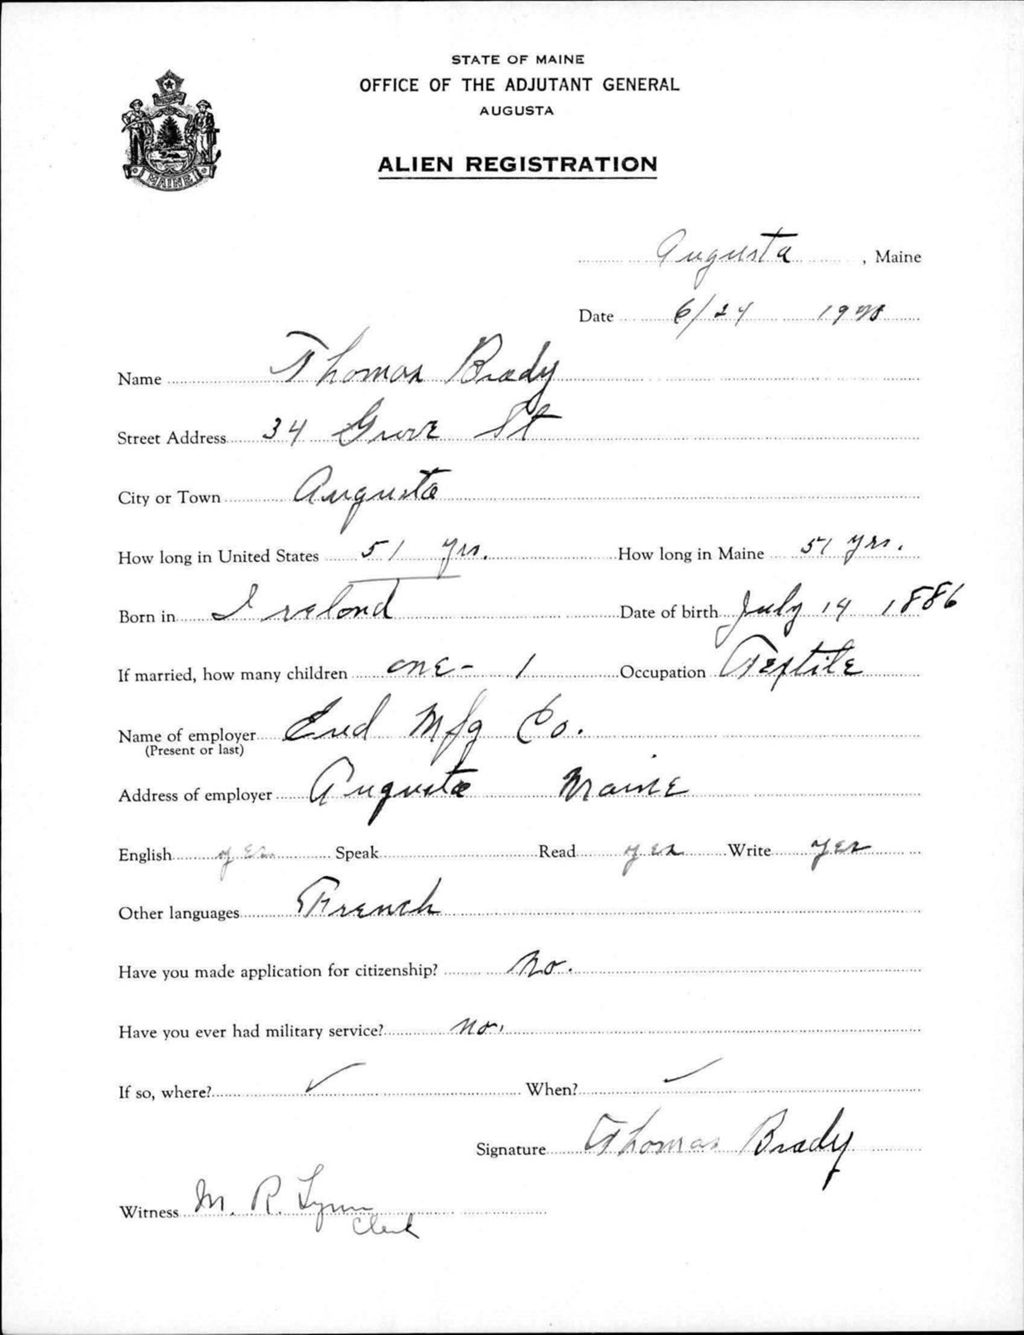 STATE OF MAINE
OFFICE OF THE ADJUTANT GENERAL
AUGUSTA
ALIEN REGISTRATION
MAINE
Augusta, Maine
Date 6/24 1940
Name Thomas Brady
Street Address 34 Grove St
City or Town Augusta
How long in United States 51 yrs. How long in Maine 51 yrs.
Born in Ireland Date of birth July 14 1886
If married, how many children one - 1 Occupation Textile
Name of employer Mfg Co.
(Present or last)
Address of employer Augusta Maine
English yes Speak Read yes Write yes
Other languages French
Have you made application for citizenship? No.
Have you ever had military service? no.
If so, where? ✓ When? ✓
Signature Thomas Brady
Witness M. R. Lynn
Clerk